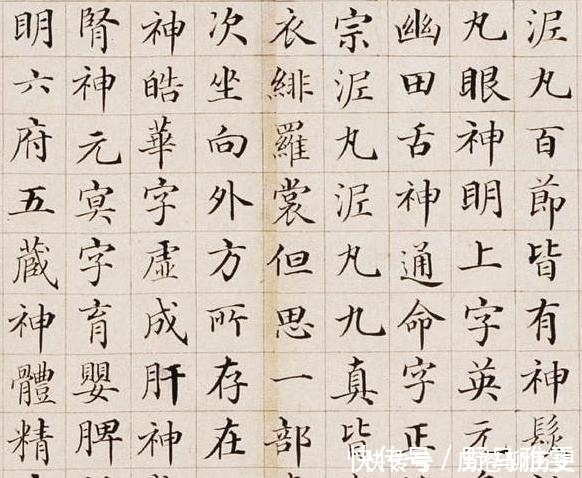 泥丸百節皆有神髮
丸眼神明上字英元
幽田舌神通命字正
宗泥丸泥丸九真皆
衣緋羅裳但思一部
次坐向外方所存在
神皓華字虛成肝神
腎神元冥字育嬰脾
明六府五藏神體精
快传号